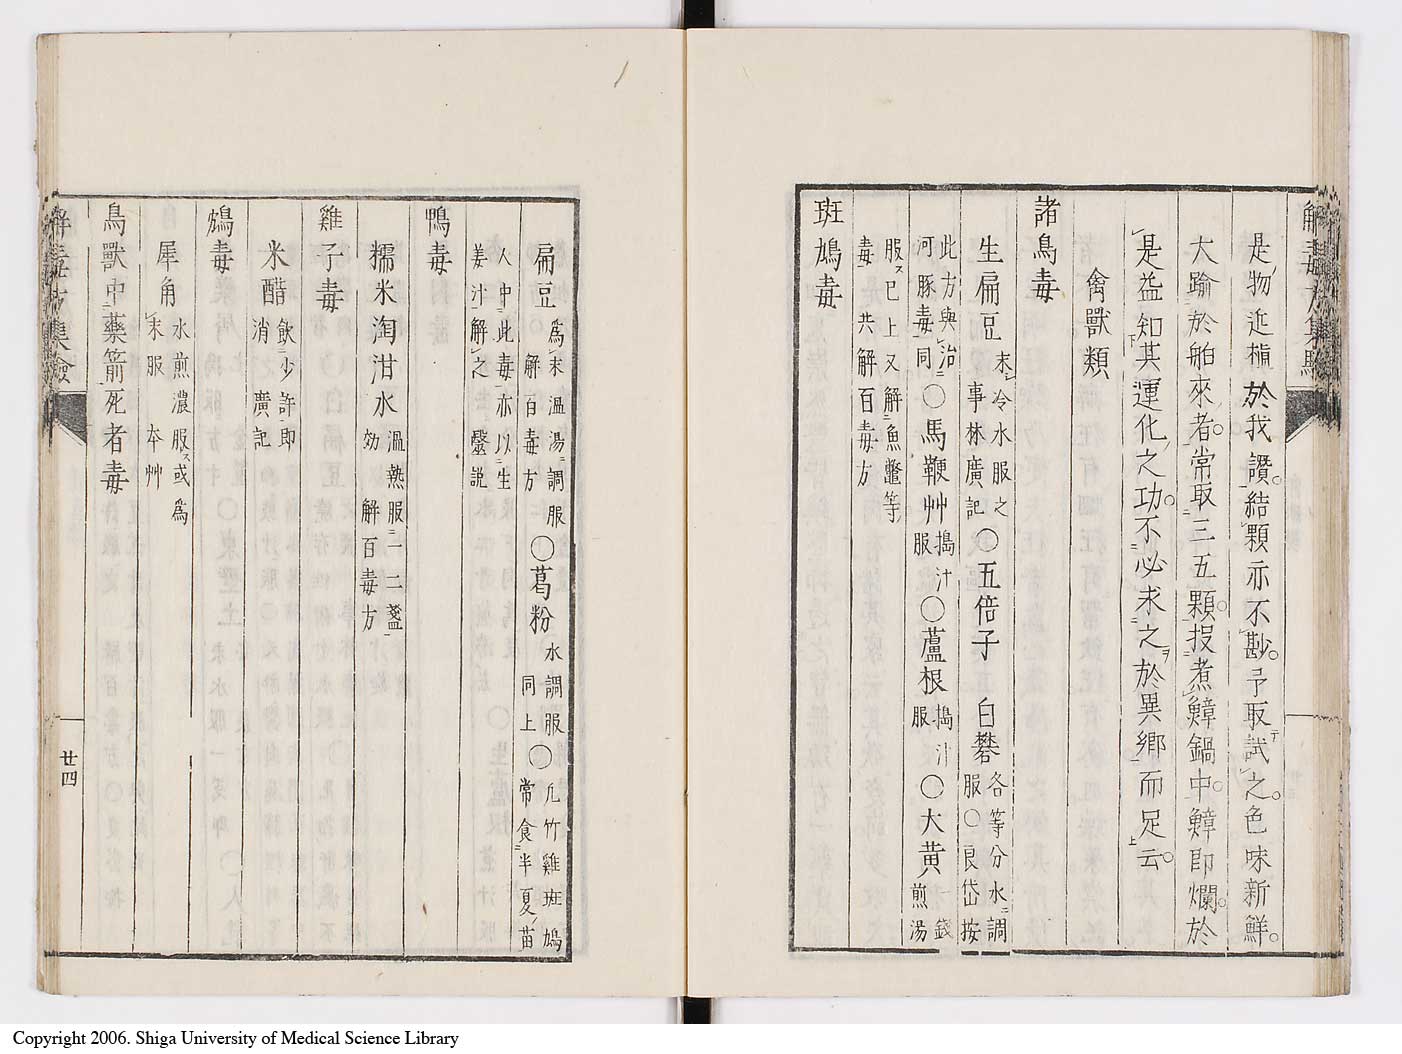 是物近植於我讃結顆亦不尠予取試之色味新鮮
大踰於舶來者常取三五顆投煮鱆鍋中鱆即爛於
是益知其運化之功不必求之於異鄉而足云
禽獸類
諸鳥毒
生扁豆末冷水服之事林廣記〇五倍子白礬各等分水調服〇良岱按
此方與治河豚毒同〇馬鞭艸搗汁服〇蘆根搗汁服〇大黃錢煎湯
服巳上又解魚鼈等毒共解百毒方
斑鳩毒
扁豆爲末溫湯調服解百毒方〇葛粉水調服同上〇凢竹雞斑鳩常食半夏苗
人中此毒亦以生姜汁解之醫說
鴨毒
糯米淘泔水溫熱服一二盞効解百毒方
雞子毒
米醋飲少許即消廣記
鴆毒
犀角水煎濃服或爲末服本艸
鳥獸中藥箭死者毒
解毒方集驗
廿四
Copyright 2006. Shiga University of Medical Science Library